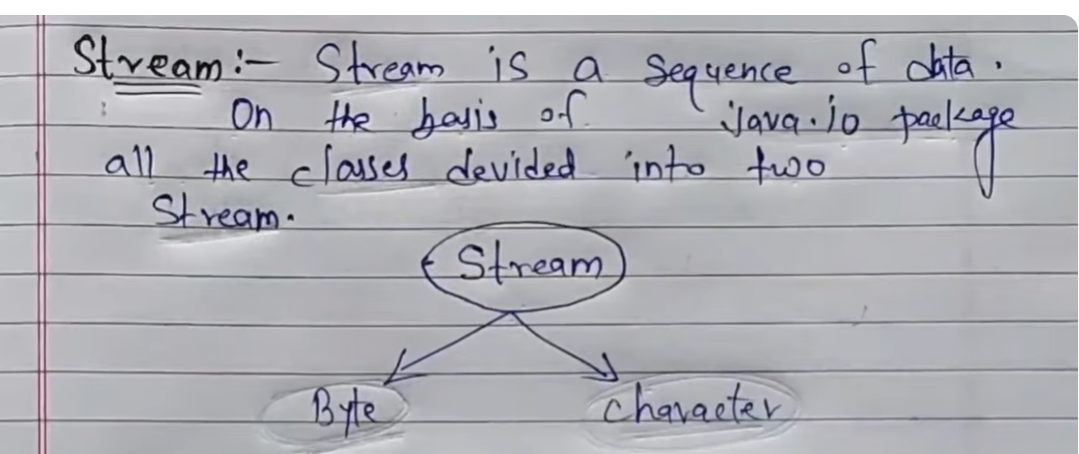 Stream:- Stream is a sequence of data.
On the basis of java.io package
all the classes devided into two
Stream.
Stream
Byte character